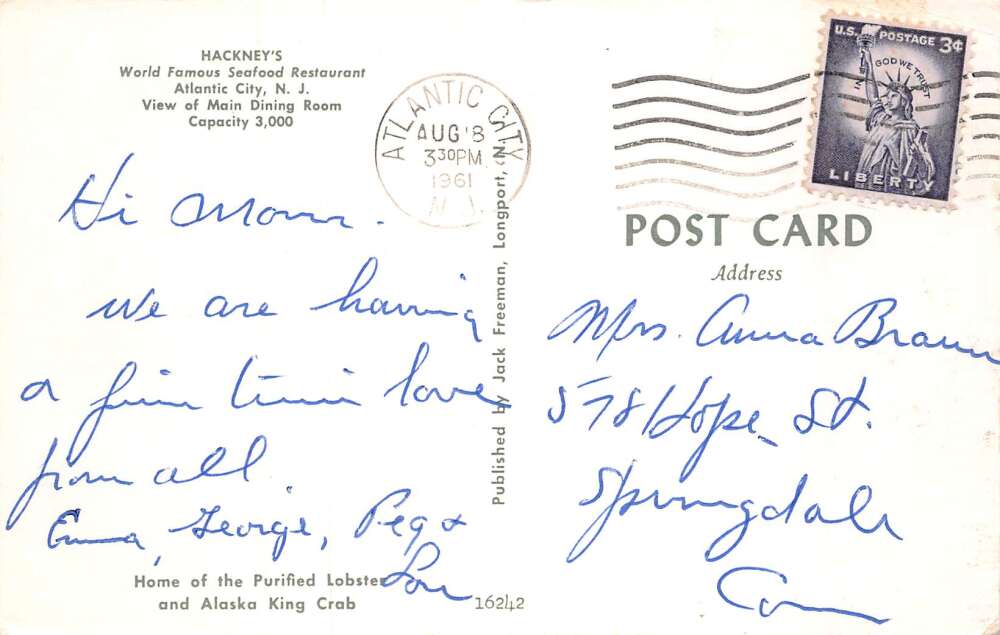 HACKNEY'S
World Famous Seafood Restaurant
Atlantic City, N. J.
View of Main Dining Room
Capacity 3,000
Hi Mom.
we are having
a fine time love
from all.
Emma, George, Peg &
Lou
Home of the Purified Lobster
and Alaska King Crab
16242
Published by Jack Freeman, Longport, N. J.
ATLANTIC CITY
AUG 8
3 30 PM
1961
N. J.
U.S. POSTAGE 3¢
IN GOD WE TRUST
LIBERTY
POST CARD
Address
Mrs. Anna Braun
578 Hope St.
Springdale
Conn